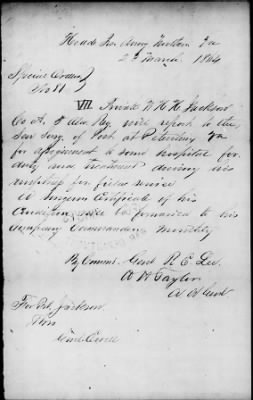 Head Qrs Army Northern Va
2d March 1864
Special Orders
No 81
VII Private W H H Jackson
Co A. Regt will report to the
Surg. of Post at Petersburg Va
for assignment to some hospital for
duty and treatment during his
unfitness for field service
A Surgeon Certificate of his
Condition will be forwarded to his
Company Commander monthly
By Command Genl R. E. Lee
W H Taylor
A A Genl
For Pvt Jackson
Thro
Genl